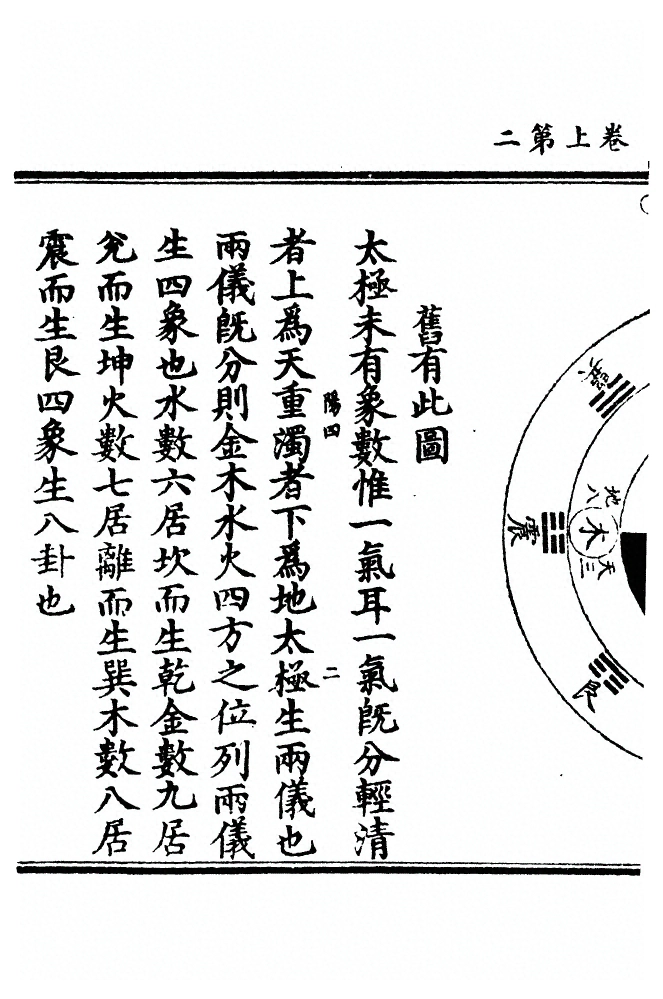 卷上第二
巽
震
艮
地八
木
天三
舊有此圖
太極未有象數惟一氣耳一氣旣分輕清
陽四
二
者上爲天重濁者下爲地太極生兩儀也
兩儀旣分則金木水火四方之位列兩儀
生四象也水數六居坎而生乾金數九居
兊而生坤火數七居離而生巽木數八居
震而生艮四象生八卦也